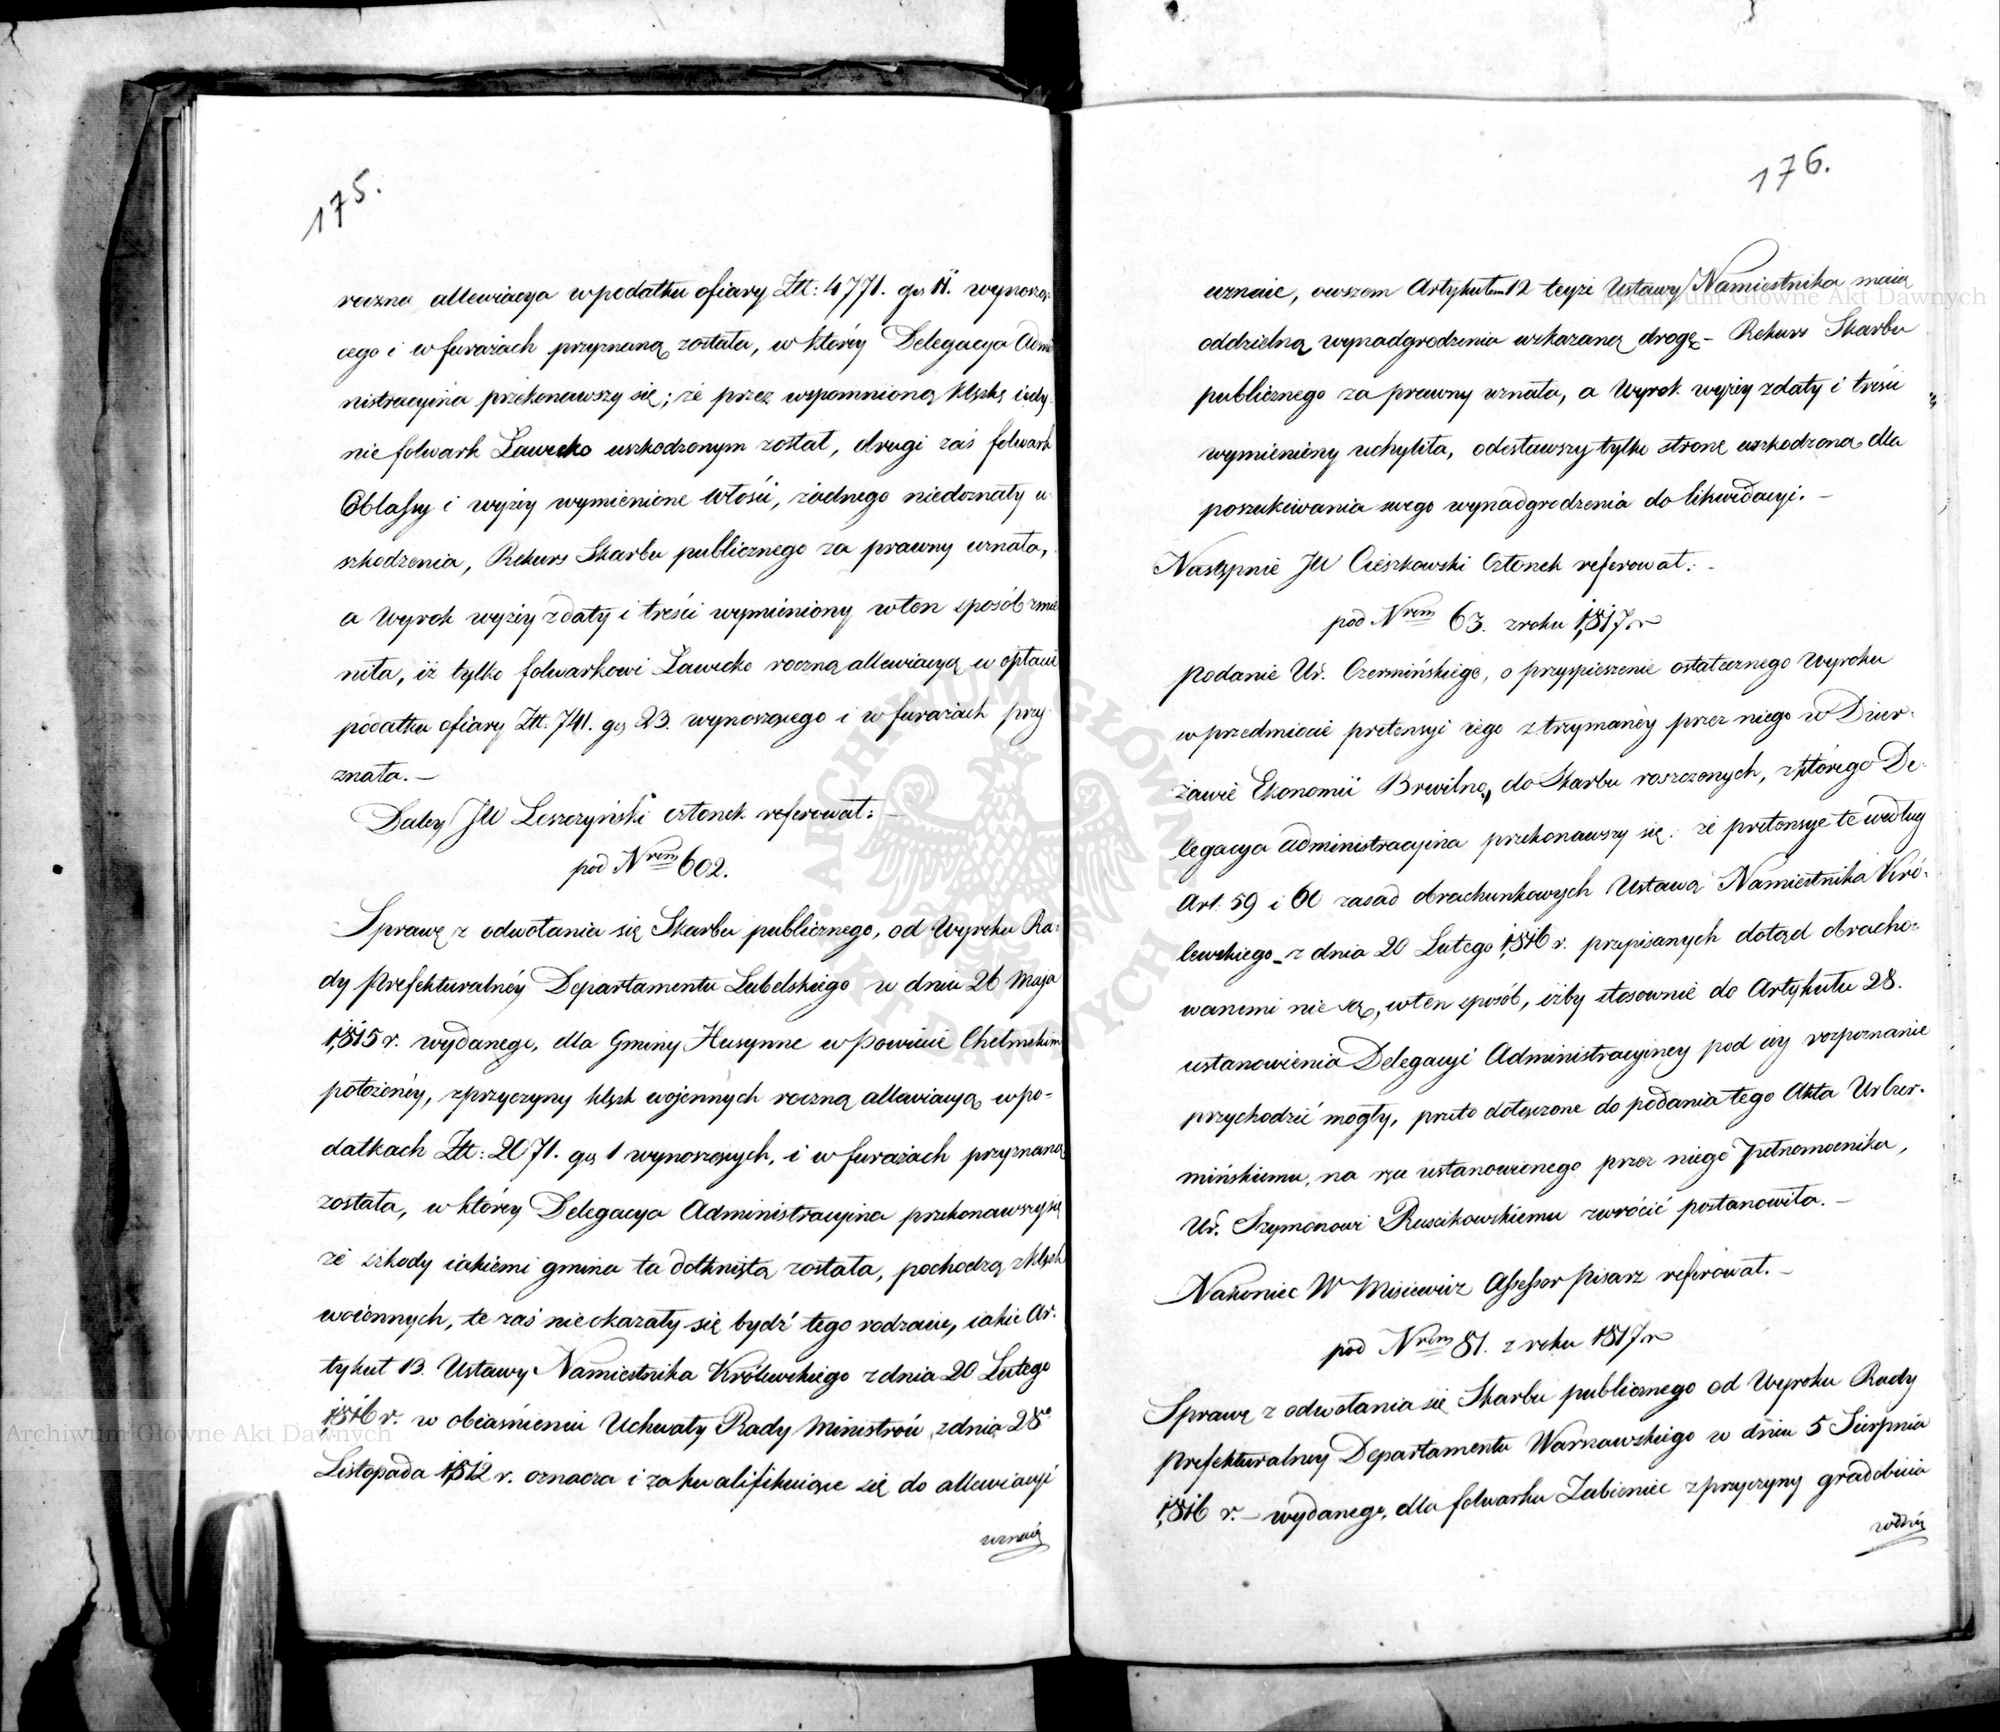 175.
roczna allewiacya w podatku ofiary Złt: 4771. gr 11. wynoszą-
cego i w furażach przyznaną została, w któréy Delegacya Admi
nistracyina przekonawszy się; że przez wspomnioną klęskę iedy-
nie folwark Ławecko uszkodzonym został, drugi zaś folwark
Oblassy i wyżéy wymienione Włości, żadnego niedoznały u-
szkodzenia, Rekurs Skarbu publicznego za prawny uznała,
a Wyrok wyżéy z daty i treści wymieniony w ten sposób zmie
niła, iż tylko folwarkowi Ławecko roczną allewiacyą w opłacie
podatku ofiary Złt. 741. gr 23. wynoszącego i w furażach przy-
znała. —
Daléy JW Leszczyński członek referował: —
pod Nrem 602.
Sprawę z odwołania się Skarbu publicznego, od Wyroku Ra-
dy Prefekturalnéy Departamentu Lubelskiego w dniu 26 Maja
1815 r. wydanego, dla Gminy Husynne w Powiecie Chełmskim
położonéy, z przyczyny klęsk wojennych roczną allewiacyą w po-
datkach Złt: 2071. gr 1 wynoszących, i w furażach przyznaną
została, w któréy Delegacya Administracyina przekonawszy się
że szkody iakiemi gmina ta dotkniętą została, pochodzą z klęsk
woiennych, te zaś nie okazały się bydź tego rodzaiu, iakie Ar-
tykuł 13. Ustawy Namiestnika Królewskiego z dnia 20 Lutego
1816 r. w obiaśnieniu Uchwały Rady Ministrów z dnia 28go
Listopada 1812 r. oznacza i za kwalifikuiące się do allewiacyi
uznaie
176.
uznaie, owszem Artykułem 12 teyże Ustawy Namiestnika maią
oddzielną wynadgrodzenia wskazaną drogę – Rekurs Skarbu
publicznego za prawny uznała, a Wyrok wyżéy z daty i treści
wymieniony uchyliła, odesławszy tylko stronę uszkodzoną dla
poszukiwania swego wynadgrodzenia do likwidacyi. —
Następnie JW Cieszkowski Członek referował: —
pod Nrem 63. z roku 1817 r.
Podanie Ur. Czermińskiego, o przyspieszenie ostatecznego Wyroku
w przedmiocie pretensyi iego z trzymanéy przez niego w Dzier-
żawie Ekonomii Brwilno, do Skarbu roszczonych, z którego De-
legacya administracyina przekonawszy się: że pretensye te według
Art. 59 i 60 zasad obrachunkowych Ustawą Namiestnika Kró-
lewskiego z dnia 20 Lutego 1816 r. przepisanych dotąd obracho-
wanemi nie są, w ten sposób, iżby stosownie do Artykułu 28.
ustanowienia Delegacyi Administracyiney pod iéy rozpoznanie
przychodzić mogły, przeto dołączone do podania tego Akta Ur Czer-
mińskiemu, na ręce ustanowionego przez niego Pełnomocnika,
Ur. Szymonowi Ruscikowskiemu zwrócić postanowiła. —
Nakoniec W Misiewicz Assessor Pisarz referował. —
pod Nrem 81. z roku 1817 r
Sprawę z odwołania się Skarbu publicznego od Wyroku Rady
Prefekturalney Departamentu Warszawskiego w dniu 5 Sierpnia
1816 r. — wydanego, dla folwarku Zubieniec z przyczyny gradobicia
Archiwum Główne Akt Dawnych
Archiwum Główne Akt Dawnych
ARCHIWUM GŁÓWNE AKT DAWNYCH